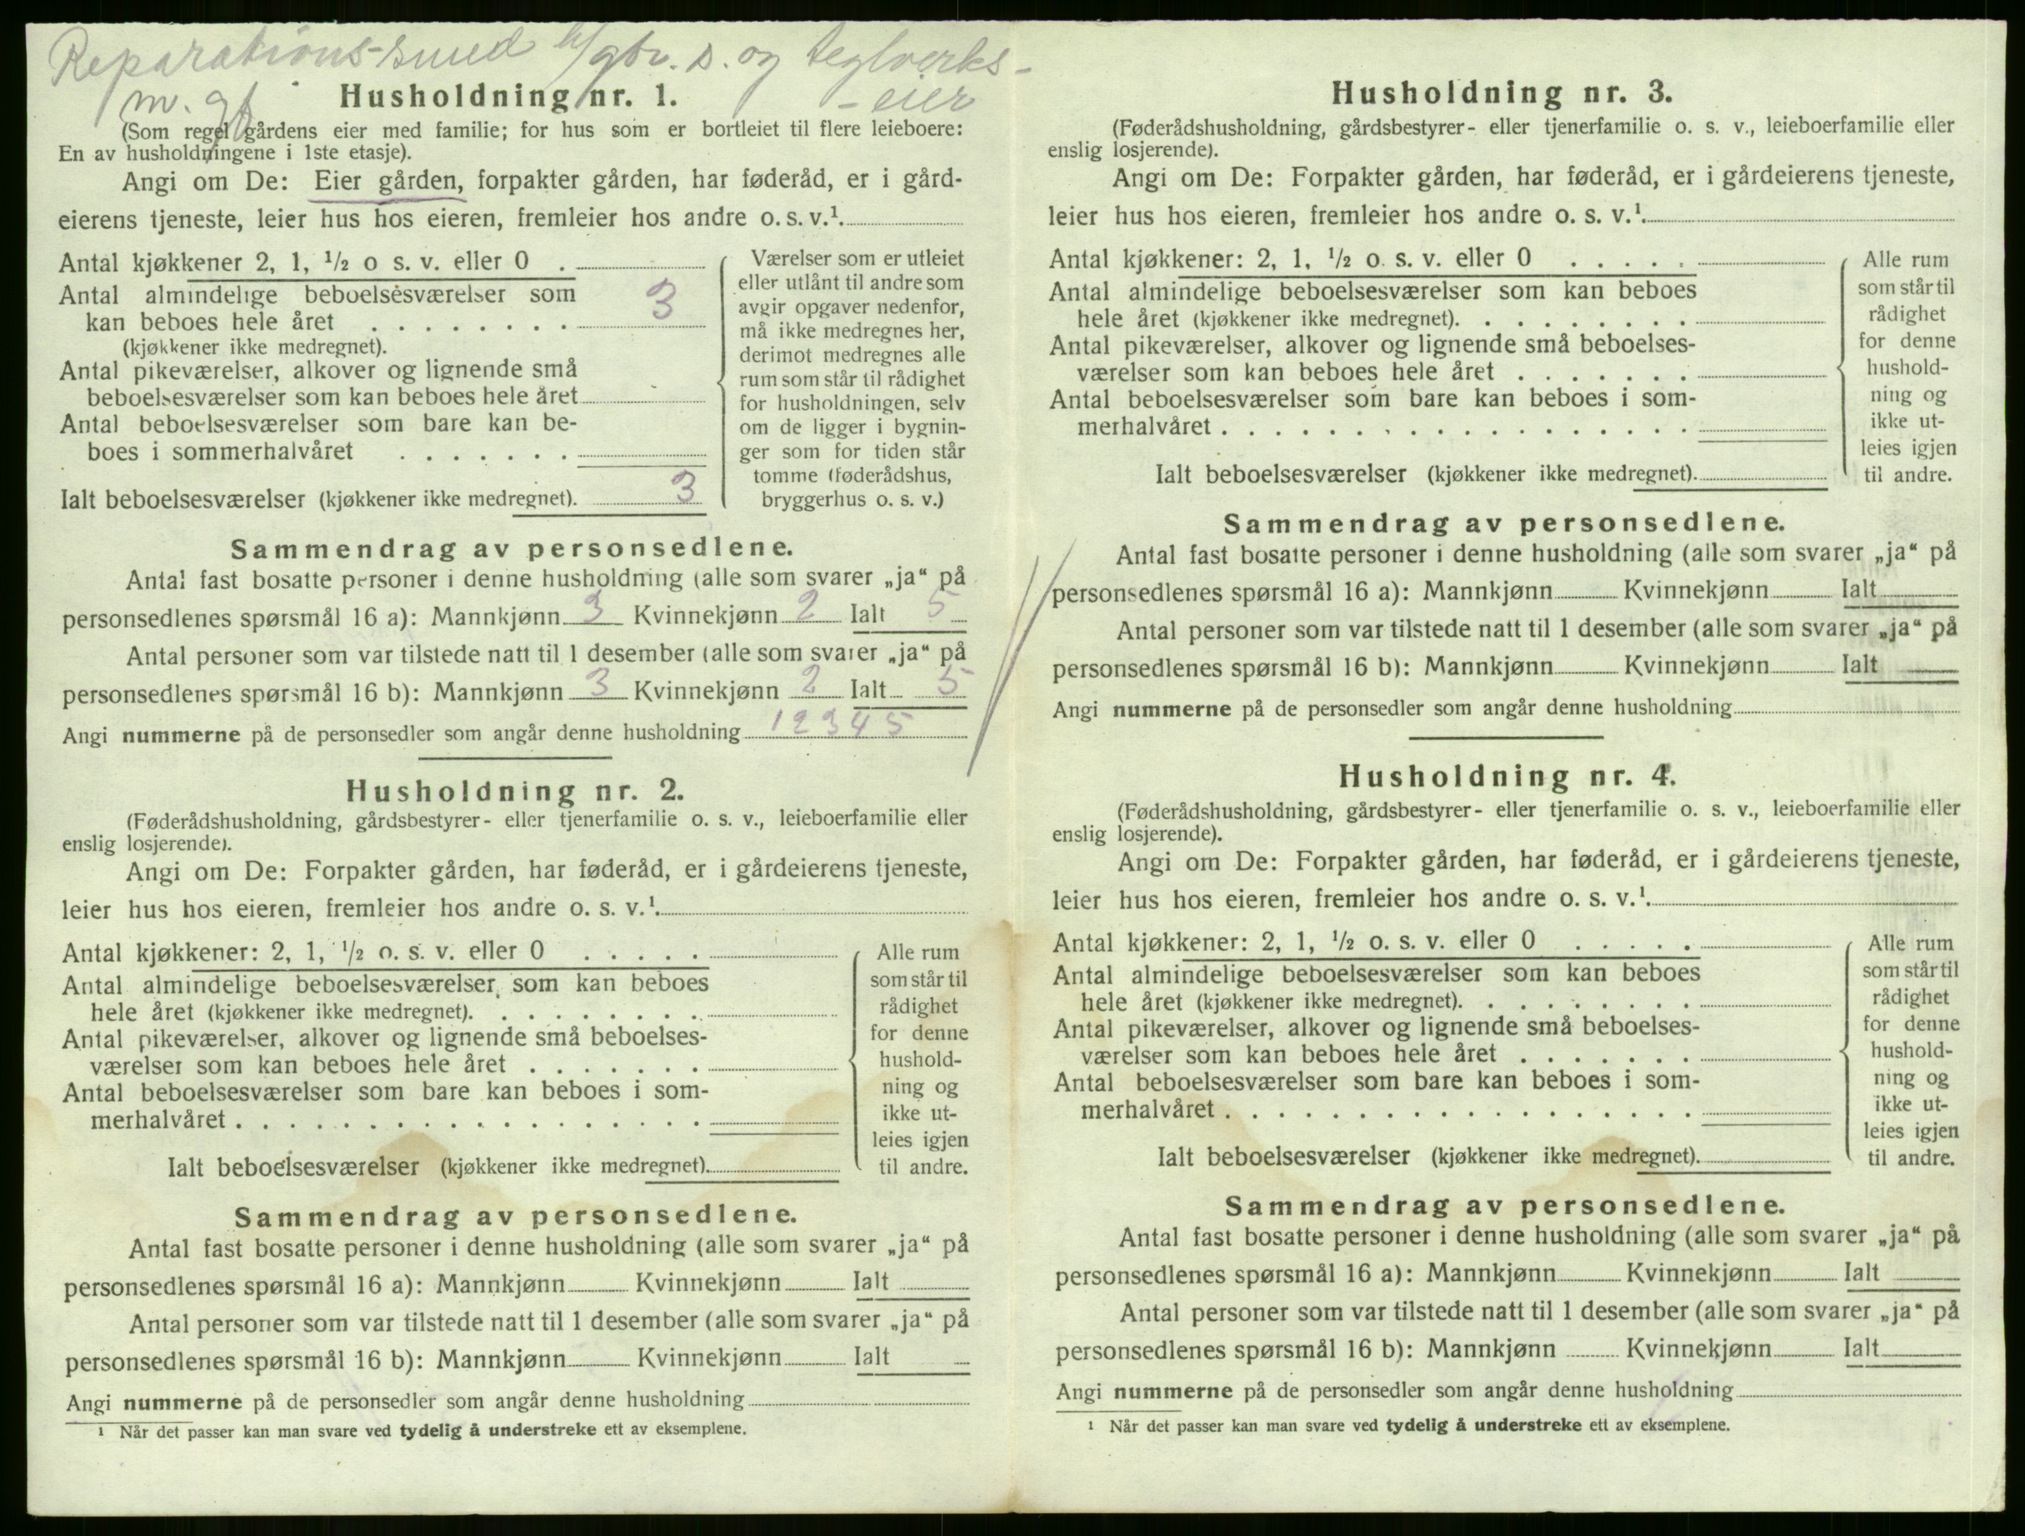 Reparations-smed h/gbr. s. og teglverks-
m. gf. -eier
Husholdning nr. 1.
(Som regel gårdens eier med familie; for hus som er bortleiet til flere leieboere:
En av husholdningene i 1ste etasje).
Angi om De: Eier gården, forpakter gården, har føderåd, er i gård-
eierens tjeneste, leier hus hos eieren, fremleier hos andre o. s. v.¹.
Antal kjøkkener 2, 1, ½ o s. v. eller 0 .
Antal almindelige beboelsesværelser som
kan beboes hele året . . . . . . . . 3
(kjøkkener ikke medregnet).
Antal pikeværelser, alkover og lignende små
beboelsesværelser som kan beboes hele året
Antal beboelsesværelser som bare kan be-
boes i sommerhalvåret . . . . . . .
Ialt beboelsesværelser (kjøkkener ikke medregnet). 3
Værelser som er utleiet
eller utlånt til andre som
avgir opgaver nedenfor,
må ikke medregnes her,
derimot medregnes alle
rum som står til rådighet
for husholdningen, selv
om de ligger i bygnin-
ger som for tiden står
tomme (føderådshus,
bryggerhus o. s. v.)
Sammendrag av personsedlene.
Antal fast bosatte personer i denne husholdning (alle som svarer „ja“ på
personsedlenes spørsmål 16 a): Mannkjønn 3 Kvinnekjønn 2 Ialt 5
Antal personer som var tilstede natt til 1 desember (alle som svarer „ja“ på
personsedlenes spørsmål 16 b): Mannkjønn 3 Kvinnekjønn 2 Ialt 5
Angi nummerne på de personsedler som angår denne husholdning 1 2 3 4 5
Husholdning nr. 2.
(Føderådshusholdning, gårdsbestyrer- eller tjenerfamilie o. s. v., leieboerfamilie eller
enslig losjerende).
Angi om De: Forpakter gården, har føderåd, er i gårdeierens tjeneste,
leier hus hos eieren, fremleier hos andre o. s. v.¹.
Antal kjøkkener: 2, 1, ½ o. s. v. eller 0 . . . . .
Antal almindelige beboelsesværelser som kan beboes
hele året (kjøkkener ikke medregnet). . . . . . . . .
Antal pikeværelser, alkover og lignende små beboelses-
værelser som kan beboes hele året . . . . . . .
Antal beboelsesværelser som bare kan beboes i som-
merhalvåret . . . . . . . . . . . . . . . . . .
Ialt beboelsesværelser (kjøkkener ikke medregnet).
Alle rum
som står til
rådighet
for denne
hushold-
ning og
ikke ut-
leies igjen
til andre.
Sammendrag av personsedlene.
Antal fast bosatte personer i denne husholdning (alle som svarer „ja“ på
personsedlenes spørsmål 16 a): Mannkjønn Kvinnekjønn Ialt
Antal personer som var tilstede natt til 1 desember (alle som svarer „ja“ på
personsedlenes spørsmål 16 b): Mannkjønn Kvinnekjønn Ialt
Angi nummerne på de personsedler som angår denne husholdning
¹ Når det passer kan man svare ved tydelig å understreke ett av eksemplene.
Husholdning nr. 3.
(Føderådshusholdning, gårdsbestyrer- eller tjenerfamilie o. s. v., leieboerfamilie eller
enslig losjerende).
Angi om De: Forpakter gården, har føderåd, er i gårdeierens tjeneste,
leier hus hos eieren, fremleier hos andre o. s. v.¹.
Antal kjøkkener: 2, 1, ½ o. s. v. eller 0 . . . . .
Antal almindelige beboelsesværelser som kan beboes
hele året (kjøkkener ikke medregnet). . . . . . . . .
Antal pikeværelser, alkover og lignende små beboelses-
værelser som kan beboes hele året . . . . . . .
Antal beboelsesværelser som bare kan beboes i som-
merhalvåret . . . . . . . . . . . . . . . . . .
Ialt beboelsesværelser (kjøkkener ikke medregnet).
Alle rum
som står til
rådighet
for denne
hushold-
ning og
ikke ut-
leies igjen
til andre.
Sammendrag av personsedlene.
Antal fast bosatte personer i denne husholdning (alle som svarer „ja“ på
personsedlenes spørsmål 16 a): Mannkjønn Kvinnekjønn Ialt
Antal personer som var tilstede natt til 1 desember (alle som svarer „ja“ på
personsedlenes spørsmål 16 b): Mannkjønn Kvinnekjønn Ialt
Angi nummerne på de personsedler som angår denne husholdning
Husholdning nr. 4.
(Føderådshusholdning, gårdsbestyrer- eller tjenerfamilie o. s. v., leieboerfamilie eller
enslig losjerende).
Angi om De: Forpakter gården, har føderåd, er i gårdeierens tjeneste,
leier hus hos eieren, fremleier hos andre o. s. v.¹.
Antal kjøkkener: 2, 1, ½ o. s. v. eller 0 . . . . .
Antal almindelige beboelsesværelser som kan beboes
hele året (kjøkkener ikke medregnet). . . . . . . . .
Antal pikeværelser, alkover og lignende små beboelses-
værelser som kan beboes hele året . . . . . . .
Antal beboelsesværelser som bare kan beboes i som-
merhalvåret . . . . . . . . . . . . . . . . . .
Ialt beboelsesværelser (kjøkkener ikke medregnet).
Alle rum
som står til
rådighet
for denne
hushold-
ning og
ikke ut-
leies igjen
til andre.
Sammendrag av personsedlene.
Antal fast bosatte personer i denne husholdning (alle som svarer „ja“ på
personsedlenes spørsmål 16 a): Mannkjønn Kvinnekjønn Ialt
Antal personer som var tilstede natt til 1 desember (alle som svarer „ja“ på
personsedlenes spørsmål 16 b): Mannkjønn Kvinnekjønn Ialt
Angi nummerne på de personsedler som angår denne husholdning
¹ Når det passer kan man svare ved tydelig å understreke ett av eksemplene.